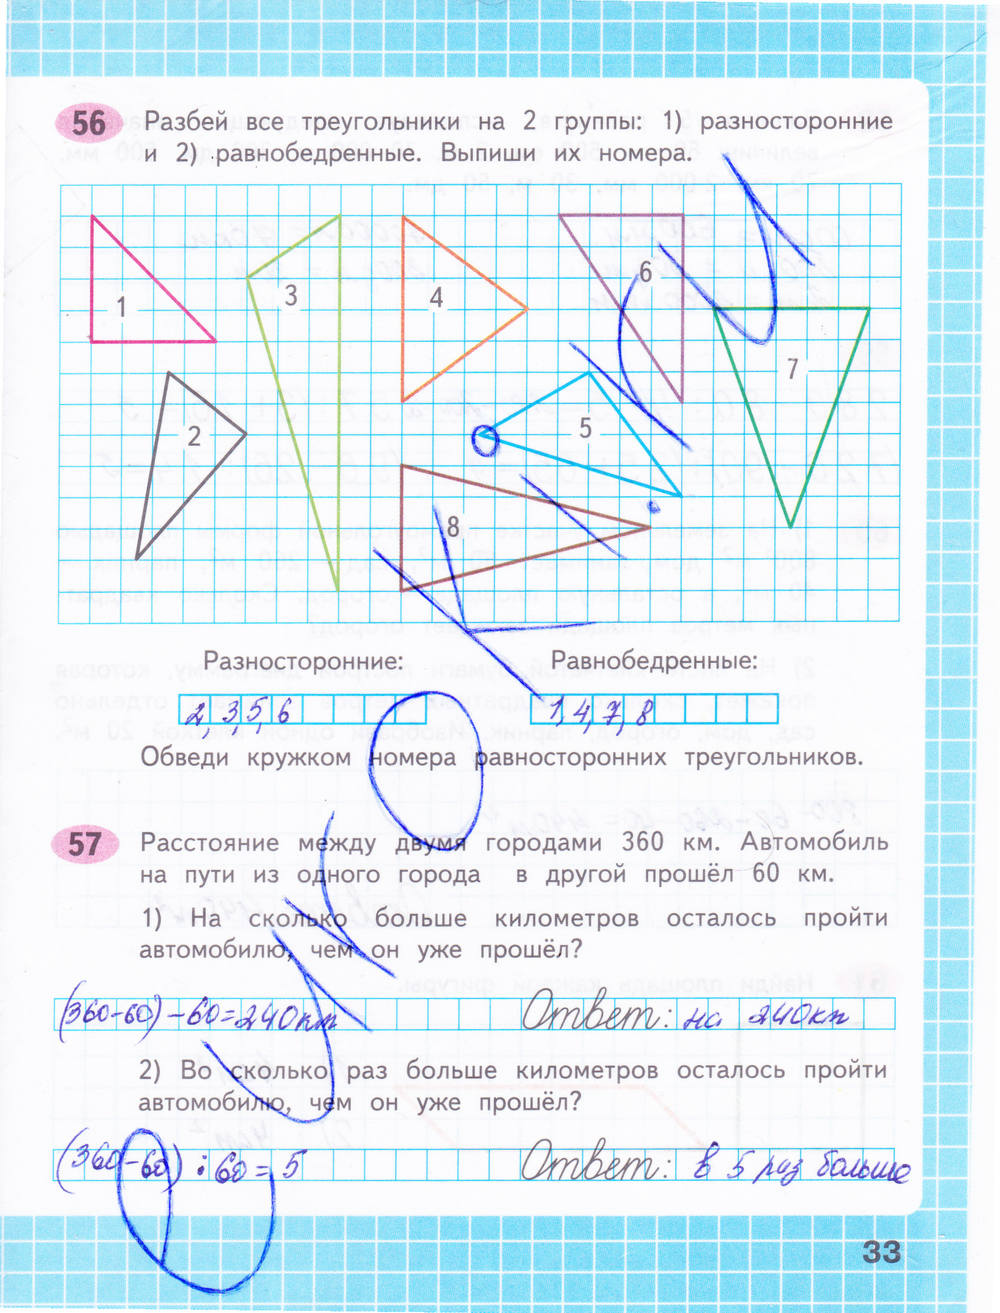 56 Разбей все треугольники на 2 группы: 1) разносторонние
и 2) равнобедренные. Выпиши их номера.
1 2 3 4 5 6 7 8
Разносторонние: Равнобедренные:
2, 3 5 6 1, 4, 7, 8
Обведи кружком номера равносторонних треугольников.
57 Расстояние между двумя городами 360 км. Автомобиль
на пути из одного города в другой прошёл 60 км.
1) На сколько больше километров осталось пройти
автомобилю, чем он уже прошёл?
(360-60)-60=240км Ответ: на 240км
2) Во сколько раз больше километров осталось пройти
автомобилю, чем он уже прошёл?
(360-60):60=5 Ответ: в 5 раз больше
33